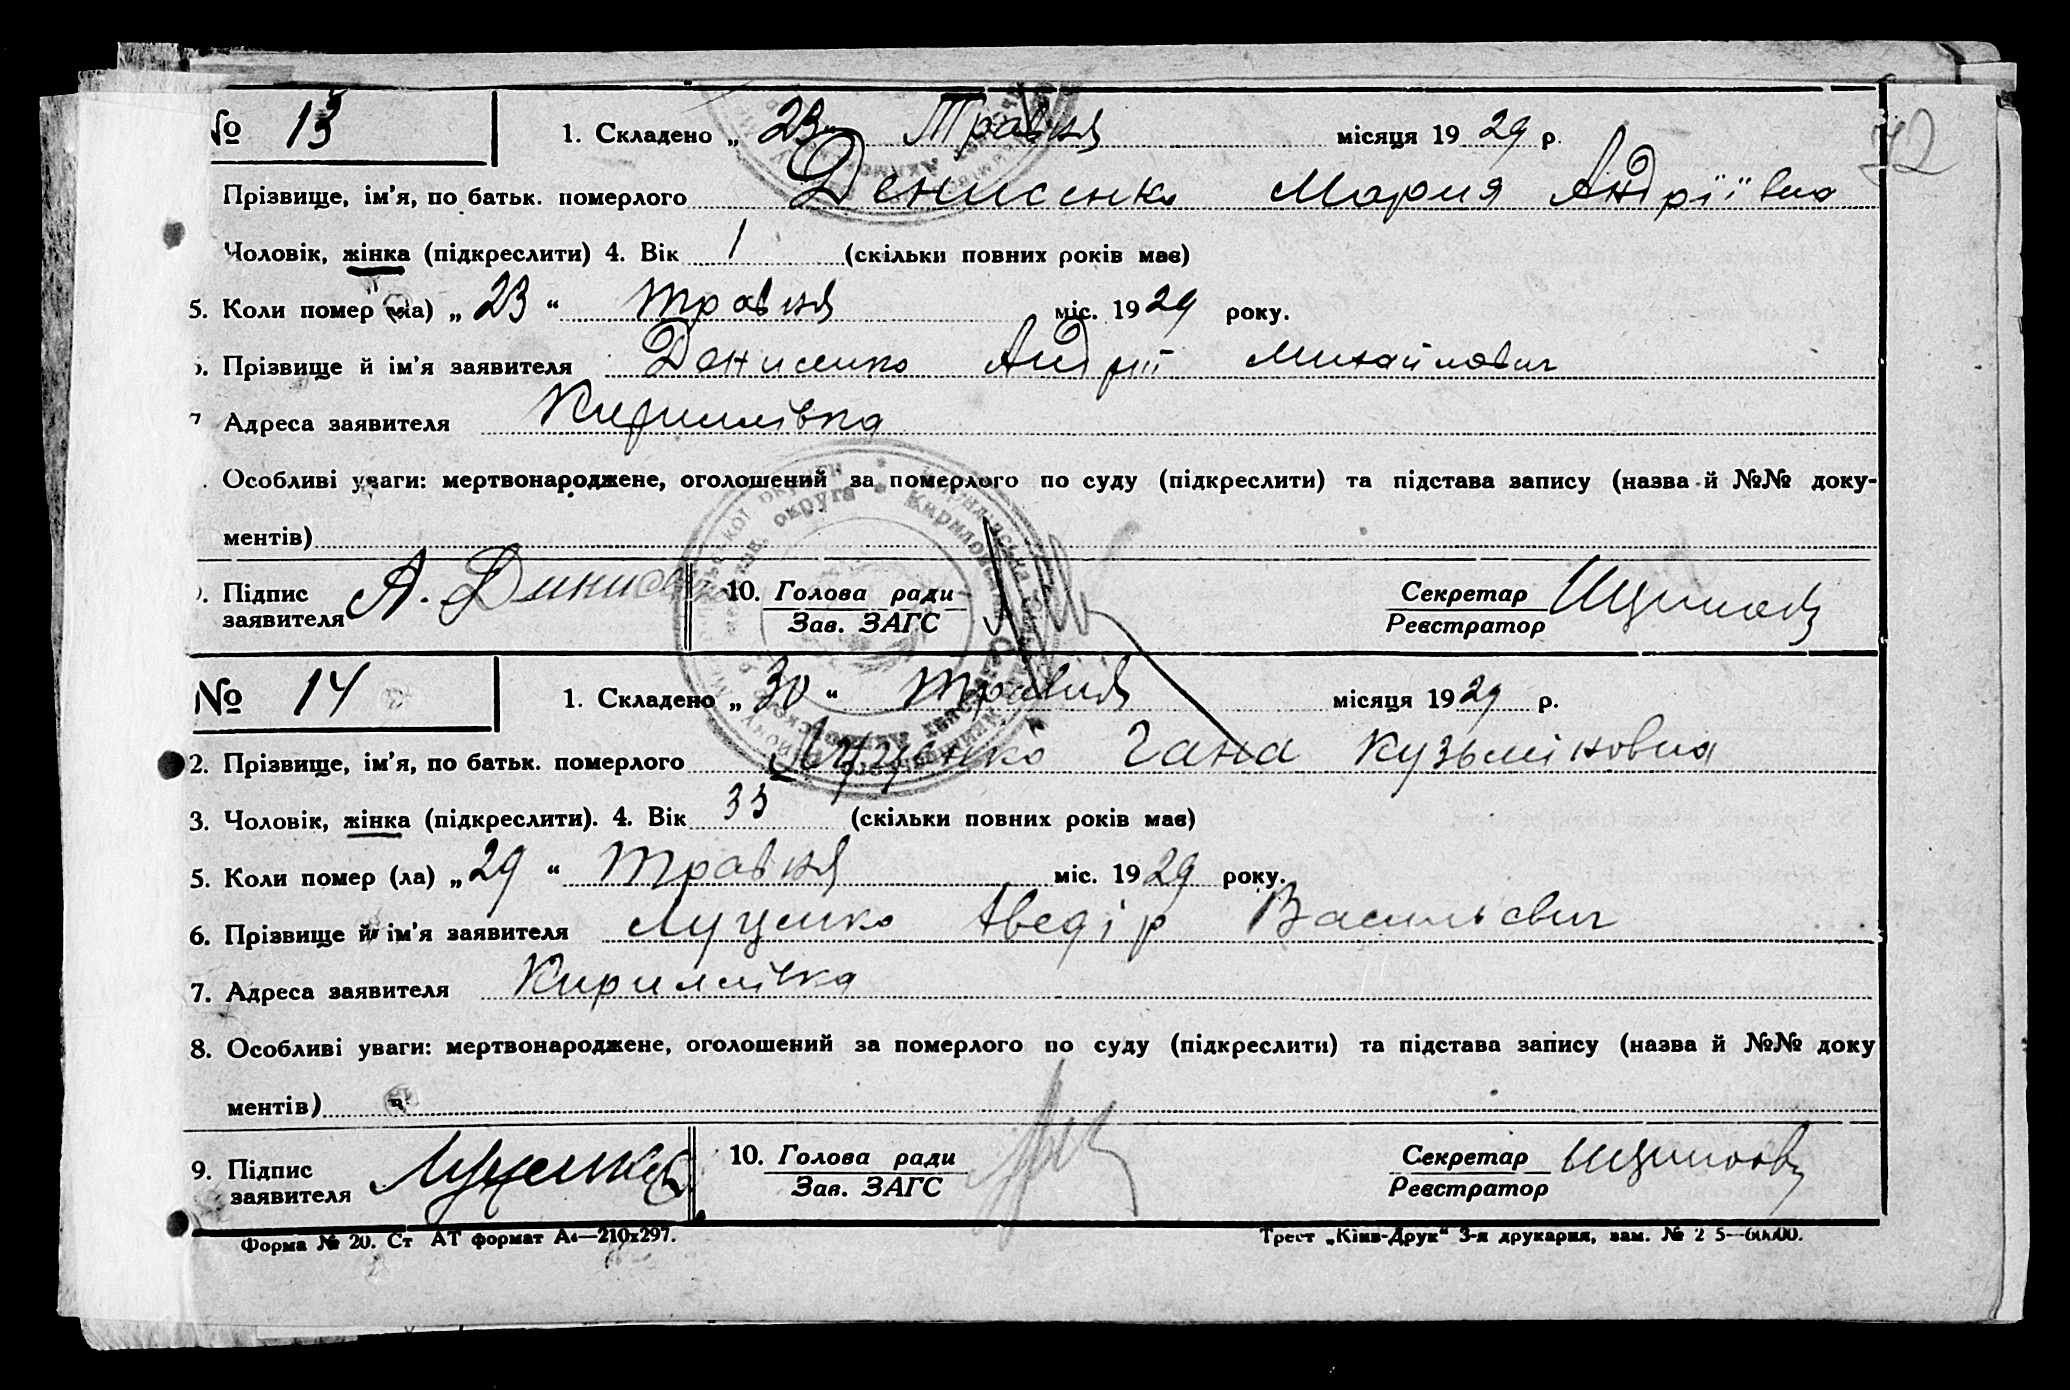 72
№ 13 1. Складено „ 23 “ Травня місяця 1929 р.
Прізвище, ім'я, по батьк. померлого Денисенко Мария Андріївна
Чоловік, жінка (підкреслити) 4. Вік 1 (скільки повних років має)
5. Коли помер (ла) „ 23 “ травня міс. 1929 року.
Прізвище й ім'я заявителя Денисенко Андрій Михайлович
7 Адреса заявителя Кирилівка
Особливі уваги: мертвонароджене, оголошений за померлого по суду (підкреслити) та підстава запису (назва й №№ доку-
ментів)
Підпис заявителя А. 10. Голова ради Зав. ЗАГС Секретар Реєстратор
№ 14 1. Складено „ 30 “ травня місяця 1929 р.
2. Прізвище, ім'я, по батьк. померлого Луценко Гана Кузьміновна
3. Чоловік, жінка (підкреслити). 4. Вік 33 (скільки повних років має)
5. Коли помер (ла) „ 29 “ травня міс. 1929 року.
6. Прізвище й ім'я заявителя Луценко Аведір Васильєвич
7. Адреса заявителя Кирилівка
8. Особливі уваги: мертвонароджене, оголошений за померлого по суду (підкреслити) та підстава запису (назва й №№ доку
ментів)
9. Підпис заявителя Луценко 10. Голова ради Зав. ЗАГС Секретар Реєстратор
Форма № 20. Ст АТ формат А4—210х297. Трест „Київ-Друк“ 3-я друкарня, зам. №